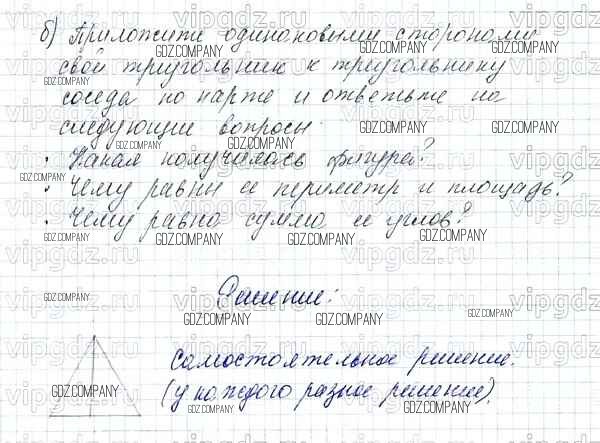 б) Приложите одинаковыми сторонами
свой треугольник к треугольнику
соседа по парте и ответьте на
следующие вопросы:
· Какая получилась фигура?
· Чему равны ее периметр и площадь?
· Чему равна сумма ее углов?
Решение:
Самостоятельное решение.
(у каждого разное решение).
vipgdz.ru
GDZ.COMPANY